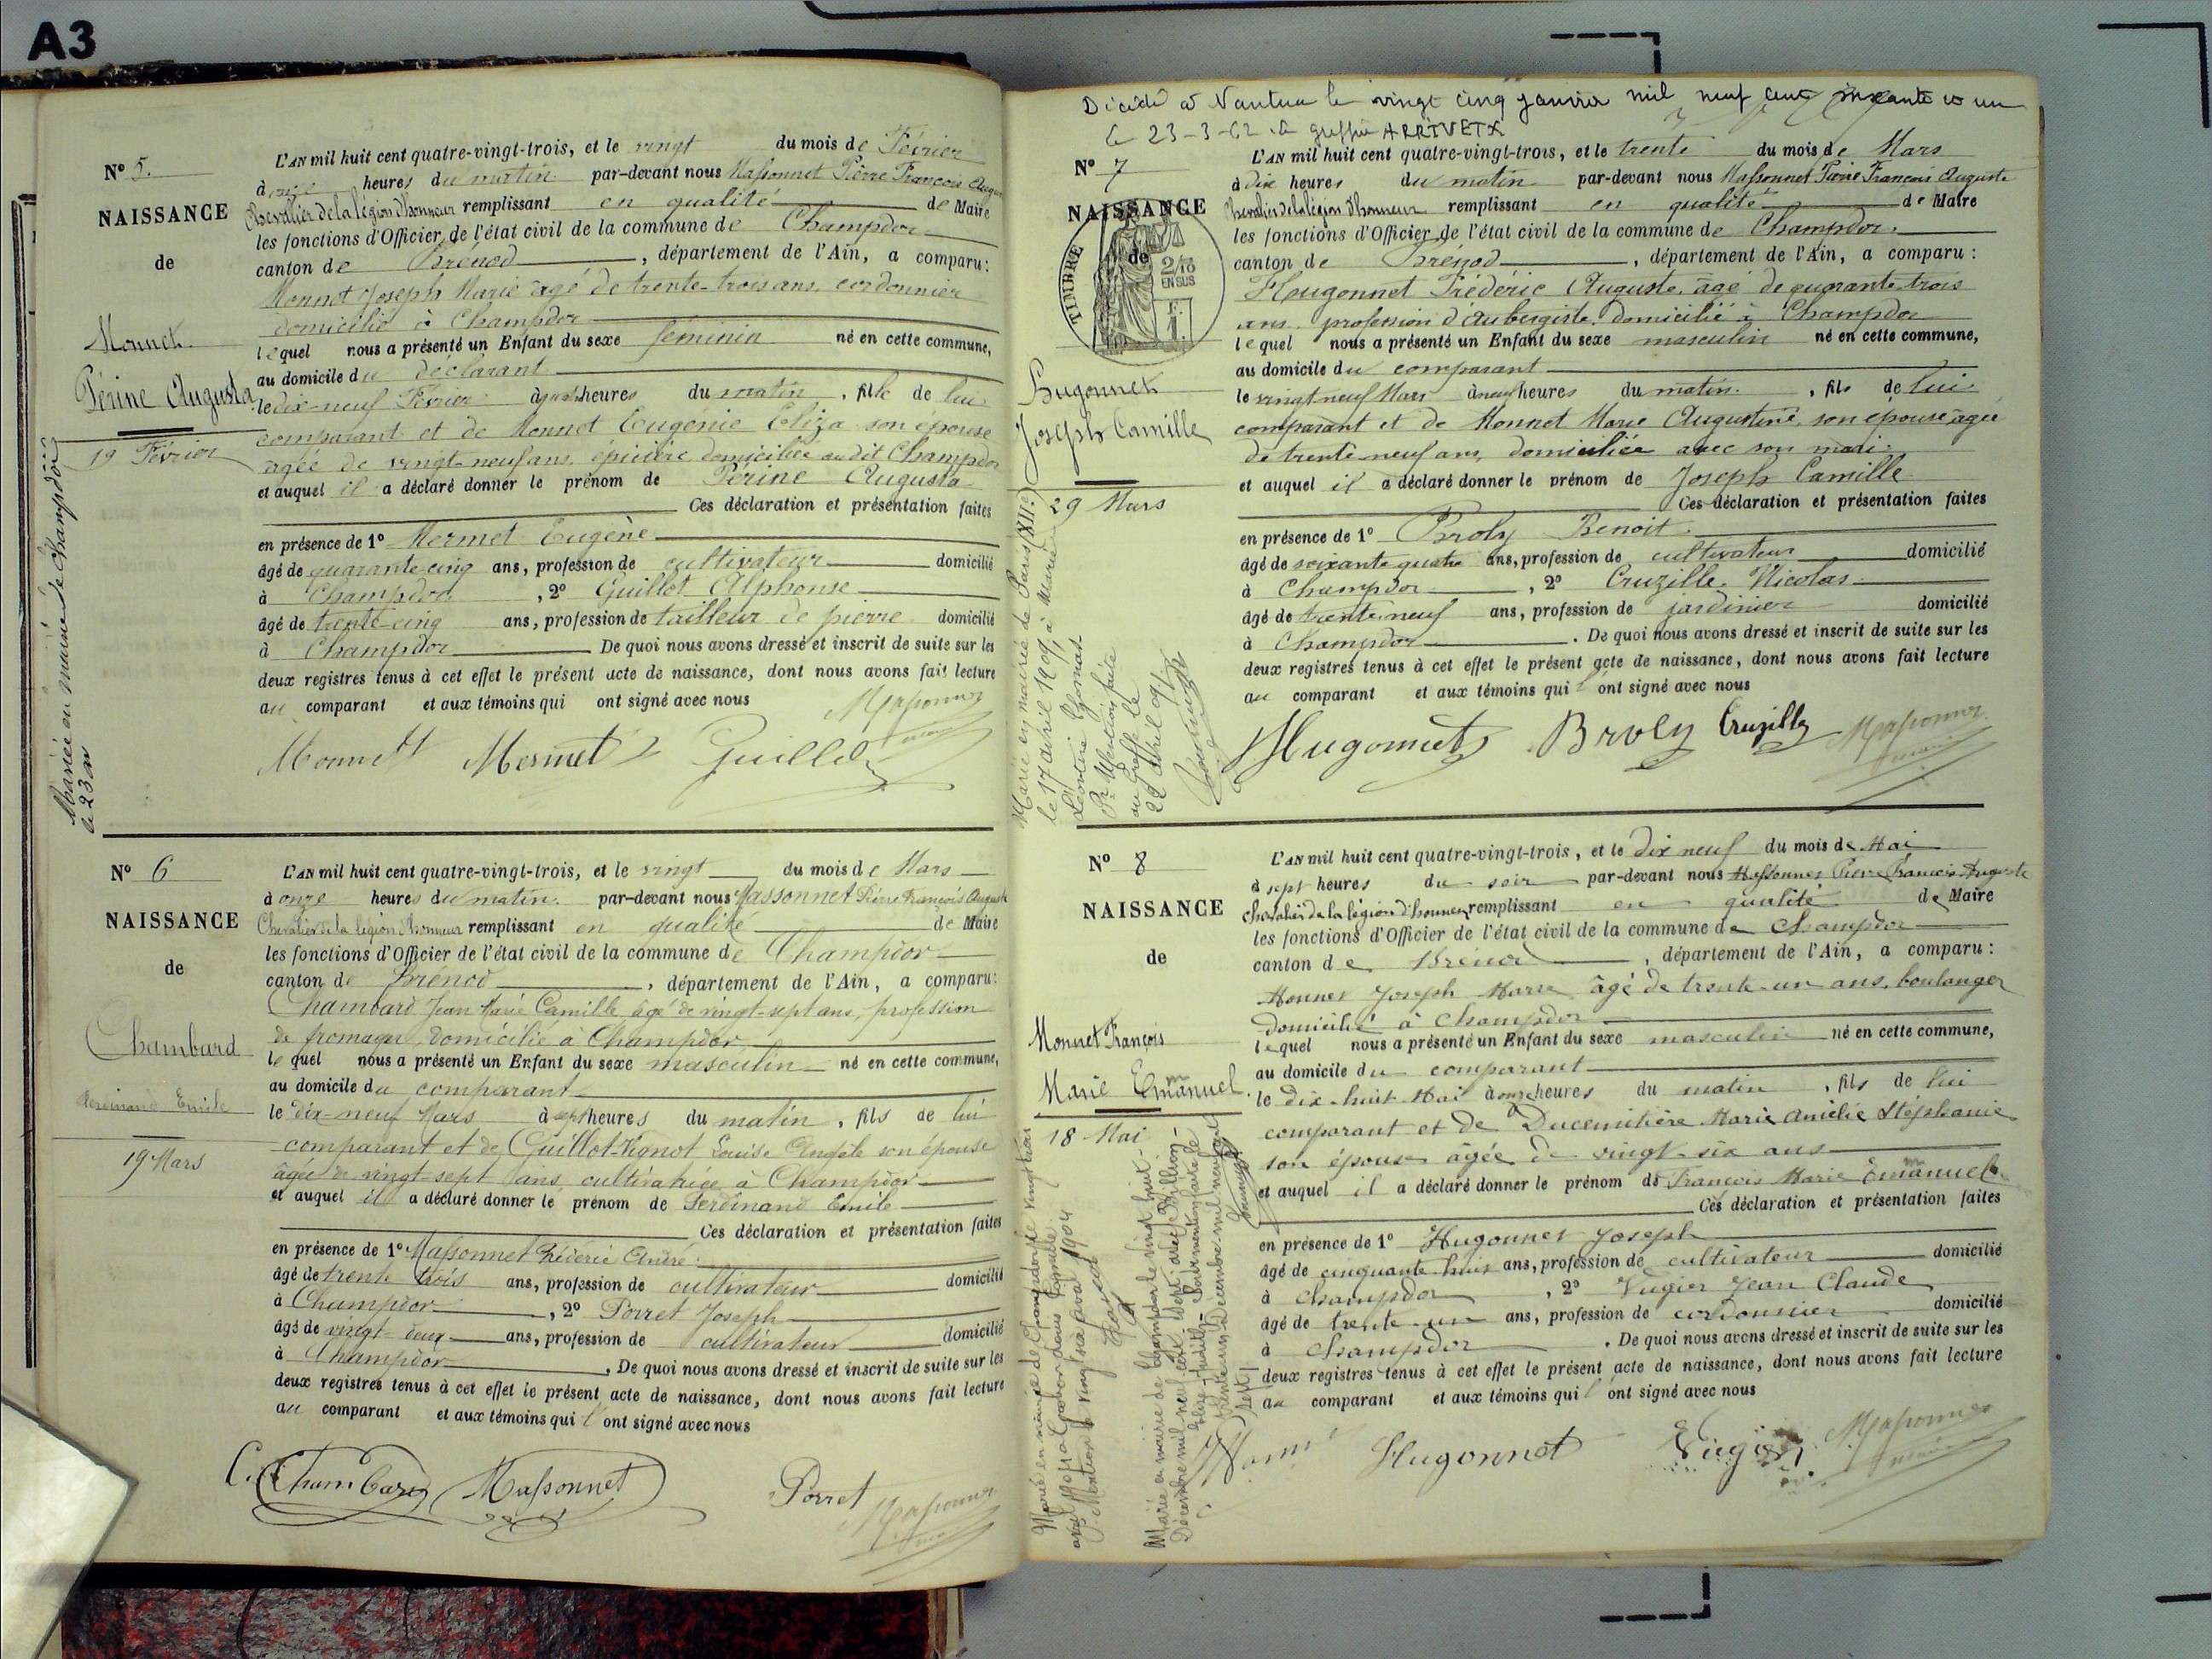 A3
N° 5.
NAISSANCE
de
Monnet
Périne Augusta
19 Février
Mariée en mairie de Champdor
le 23
L'AN mil huit cent quatre-vingt-trois, et le vingt du mois de Février
à onze heures du matin par-devant nous Massonnet Pierre François Auguste
Chevalier de la légion d'honneur remplissant en qualité de Maire
les fonctions d'Officier de l'état civil de la commune de Champdor
canton de Brénod, département de l'Ain, a comparu:
Monnet Joseph Marie âgé de trente-trois ans, cordonnier
domicilié à Champdor
lequel nous a présenté un Enfant du sexe féminin né en cette commune,
au domicile du déclarant
le dix-neuf Février à heures du matin, fille de lui
comparant et de Monnet Eugénie Eliza son épouse
âgée de vingt-neuf ans, épicière domiciliée au dit Champdor
et auquel il a déclaré donner le prénom de Périne Augusta
Ces déclaration et présentation faites
en présence de 1° Mermet Eugène
âgé de quarante-cinq ans, profession de cultivateur domicilié
à Champdor, 2° Guillot Alphonse
âgé de trente-cinq ans, profession de tailleur de pierre domicilié
à Champdor De quoi nous avons dressé et inscrit de suite sur les
deux registres tenus à cet effet le présent acte de naissance, dont nous avons fait lecture
au comparant et aux témoins qui ont signé avec nous
Massonnet
Monnet Mermet Guillot
N° 6
NAISSANCE
de
Chambard
Ferdinand Emile
19 Mars
L'AN mil huit cent quatre-vingt-trois, et le vingt du mois de Mars
à onze heures du matin. par-devant nous Massonnet Pierre François Auguste
Chevalier de la légion d'honneur remplissant en qualité de Maire
les fonctions d'Officier de l'état civil de la commune de Champdor
canton de Brénod, département de l'Ain, a comparu:
Chambard Jean Marie Camille âgé de vingt-sept ans, profession
de fromager, domicilié à Champdor
lequel nous a présenté un Enfant du sexe masculin né en cette commune,
au domicile du comparant
le dix-neuf Mars à sept heures du matin, fils de lui
comparant et de Guillot-Vignot Louise Angèle son épouse
âgée de vingt-sept ans, cultivatrice à Champdor
et auquel il a déclaré donner le prénom de Ferdinand Emile
Ces déclaration et présentation faites
en présence de 1° Massonnet Frédéric André
âgé de trente trois ans, profession de cultivateur domicilié
à Champdor, 2° Porret Joseph
âgé de vingt-deux ans, profession de cultivateur domicilié
à Champdor. De quoi nous avons dressé et inscrit de suite sur les
deux registres tenus à cet effet le présent acte de naissance, dont nous avons fait lecture
au comparant et aux témoins qui ont signé avec nous
C. Chambard Massonnet Porret Massonnet
Décédé à Nantua le vingt cinq janvier mil neuf cent soixante et un
Le 23-3-62 Le greffier ARRIVETX
N° 7
NAISSANCE
de
TIMBRE
2/10
EN SUS
Hugonnet
Joseph Camille
29 Mars
Marié en mairie de Paris (XIIe)
le 17 avril 1909, à Marie
Léontine
Pr Mention faite
au Greffe le
22 Avril 9
L'AN mil huit cent quatre-vingt-trois, et le trente du mois de Mars
à dix heures du matin par-devant nous Massonnet Pierre François Auguste
Chevalier de la légion d'honneur remplissant en qualité de Maire
les fonctions d'Officier de l'état civil de la commune de Champdor.
canton de Brénod, département de l'Ain, a comparu:
Hugonnet Frédéric Auguste, âgé de quarante trois
ans, profession d'aubergiste, domicilié à Champdor
lequel nous a présenté un Enfant du sexe masculin né en cette commune,
au domicile du comparant
le vingt neuf Mars à neuf heures du matin, fils de lui
comparant et de Monnet Marie Augustine, son épouse âgée
de trente neuf ans, domiciliée avec son mari
et auquel il a déclaré donner le prénom de Joseph Camille
Ces déclaration et présentation faites
en présence de 1° Broly Benoit
âgé de soixante quatre ans, profession de cultivateur domicilié
à Champdor, 2° Cruzille Nicolas
âgé de trente neuf ans, profession de jardinier domicilié
à Champdor. De quoi nous avons dressé et inscrit de suite sur les
deux registres tenus à cet effet le présent acte de naissance, dont nous avons fait lecture
au comparant et aux témoins qui ont signé avec nous
Hugonnet Broly Cruzille Massonnet
N° 8
NAISSANCE
de
Monnet François
Marie Emmanuel
18 Mai
Marié en mairie de Champdor le vingt trois
avril 1904
Mention le vingt six avril 1904
Marié en mairie de Champdor le vingt huit
Décembre mil neuf cent sept, avec
L'AN mil huit cent quatre-vingt-trois, et le dix neuf du mois de Mai
à sept heures du soir par-devant nous Massonnet Pierre François Auguste
chevalier de la légion d'honneur remplissant en qualité de Maire
les fonctions d'Officier de l'état civil de la commune de Champdor
canton de Brénod, département de l'Ain, a comparu:
Monnet Joseph Marie âgé de trente-un ans, boulanger
domicilié à Champdor
lequel nous a présenté un Enfant du sexe masculin né en cette commune,
au domicile du comparant
le dix-huit Mai à onze heures du matin, fils de lui
comparant et de Ducemitière Marie Amélie Stéphanie
son épouse âgée de vingt-six ans
et auquel il a déclaré donner le prénom de François Marie Emmanuel
Ces déclaration et présentation faites
en présence de 1° Hugonnet Joseph
âgé de cinquante huit ans, profession de cultivateur domicilié
à Champdor, 2° Vugier Jean Claude
âgé de trente-un ans, profession de cordonnier domicilié
à Champdor. De quoi nous avons dressé et inscrit de suite sur les
deux registres tenus à cet effet le présent acte de naissance, dont nous avons fait lecture
au comparant et aux témoins qui ont signé avec nous
Hugonnet Vugier Massonnet